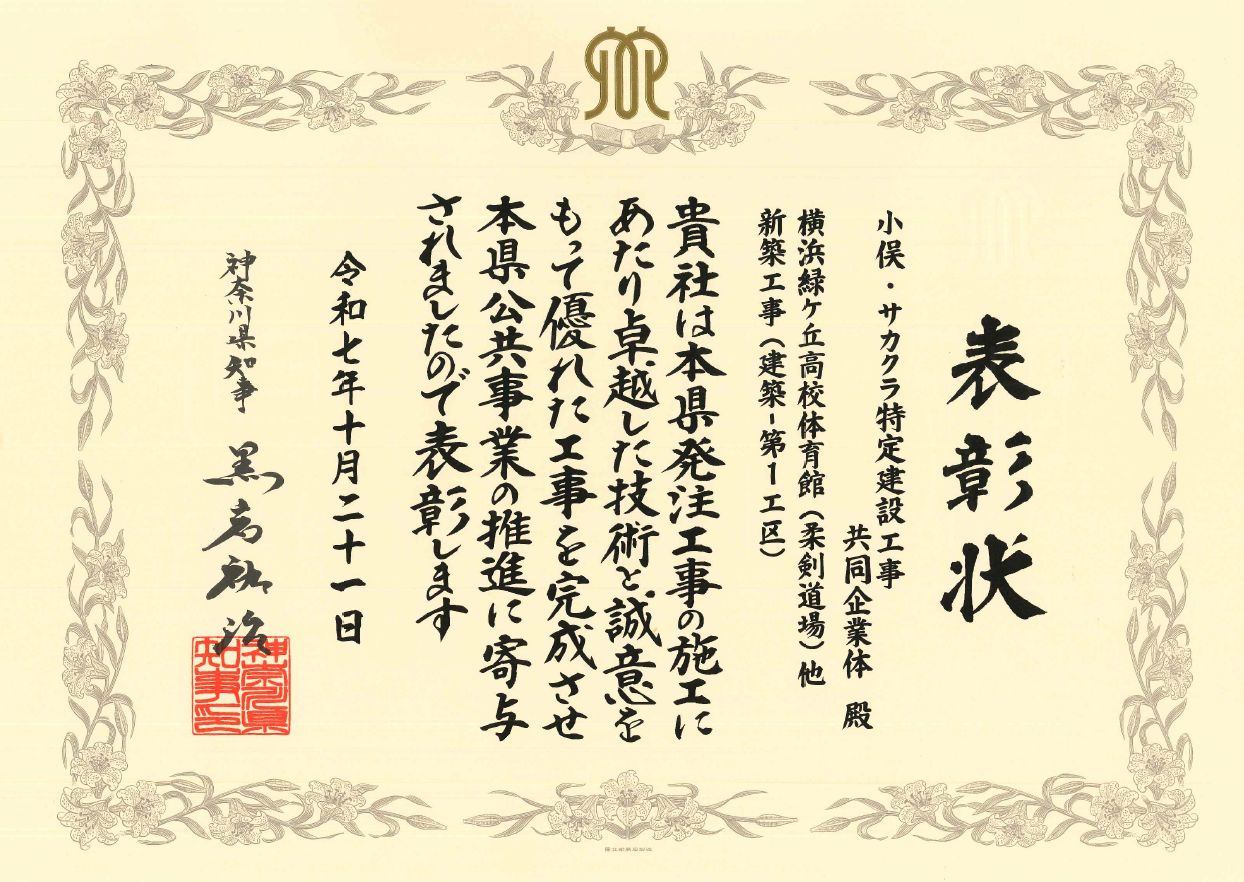 表彰状
小俣・サカクラ特定建設工事
共同企業体 殿
横浜緑ケ丘高校体育館(柔剣道場)他
新築工事(建築-第1工区)
貴社は本県発注工事の施工に
あたり卓越した技術と誠意を
もって優れた工事を完成させ
本県公共事業の推進に寄与
されましたので表彰します
令和七年十月二十一日
神奈川県知事 黒岩祐治
神奈川県
知事之印